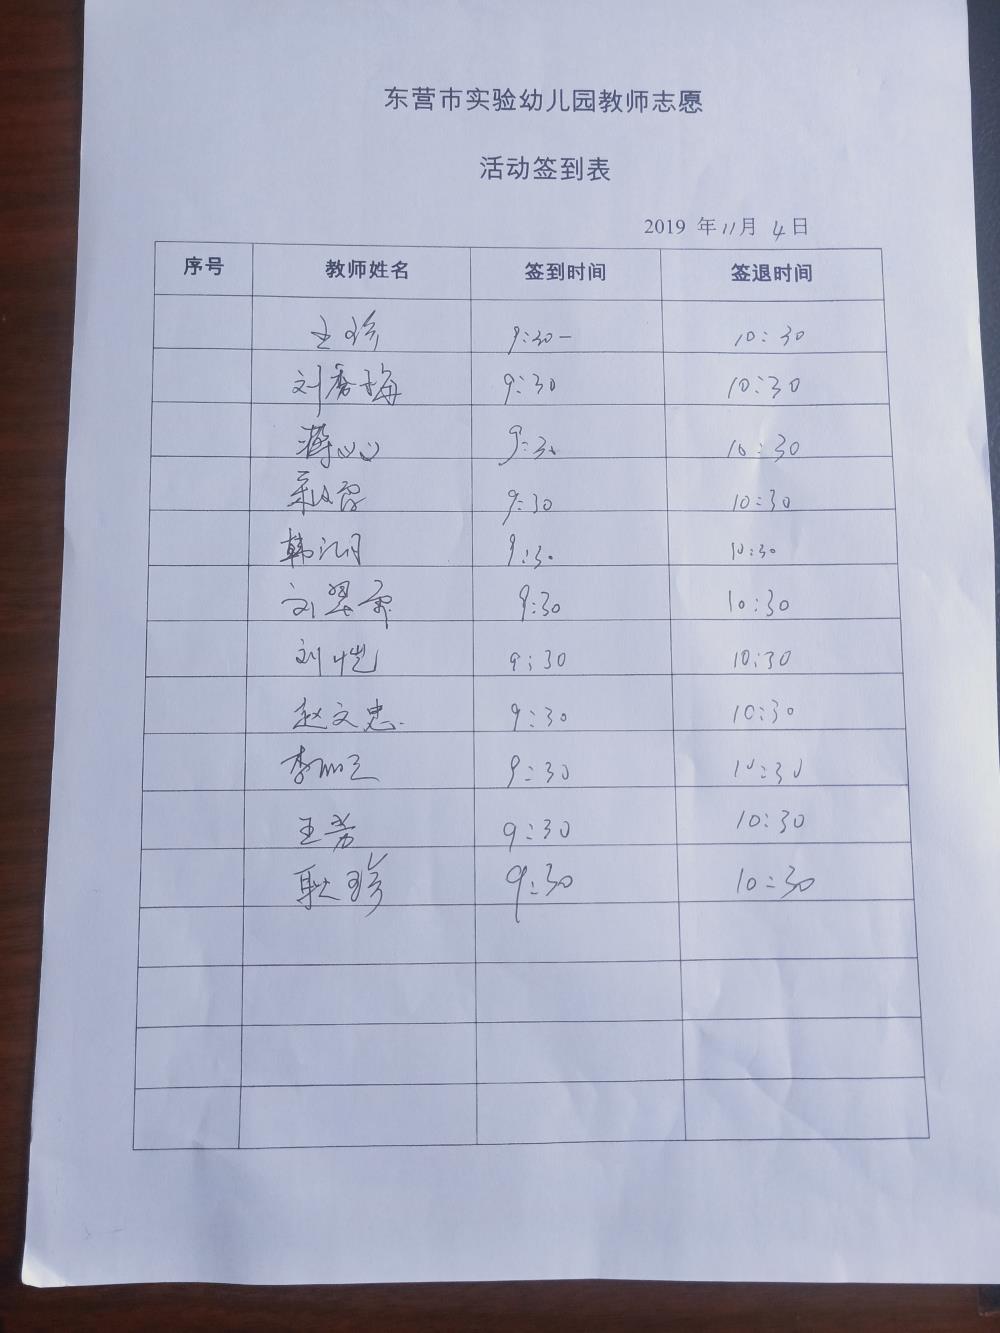 东营市实验幼儿园教师志愿
活动签到表
2019 年11月 4日
序号 教师姓名 签到时间 签退时间
王珍 9:30- 10:30
刘秀梅 9:30 10:30
蒋心心 9:30 10:30
9:30 10:30
韩 9:30 10:30
刘翠霞 9:30 10:30
刘恺 9:30 10:30
赵文忠. 9:30 10:30
李 9:30 10:30
王芳 9:30 10:30
耿珍 9:30 10:30